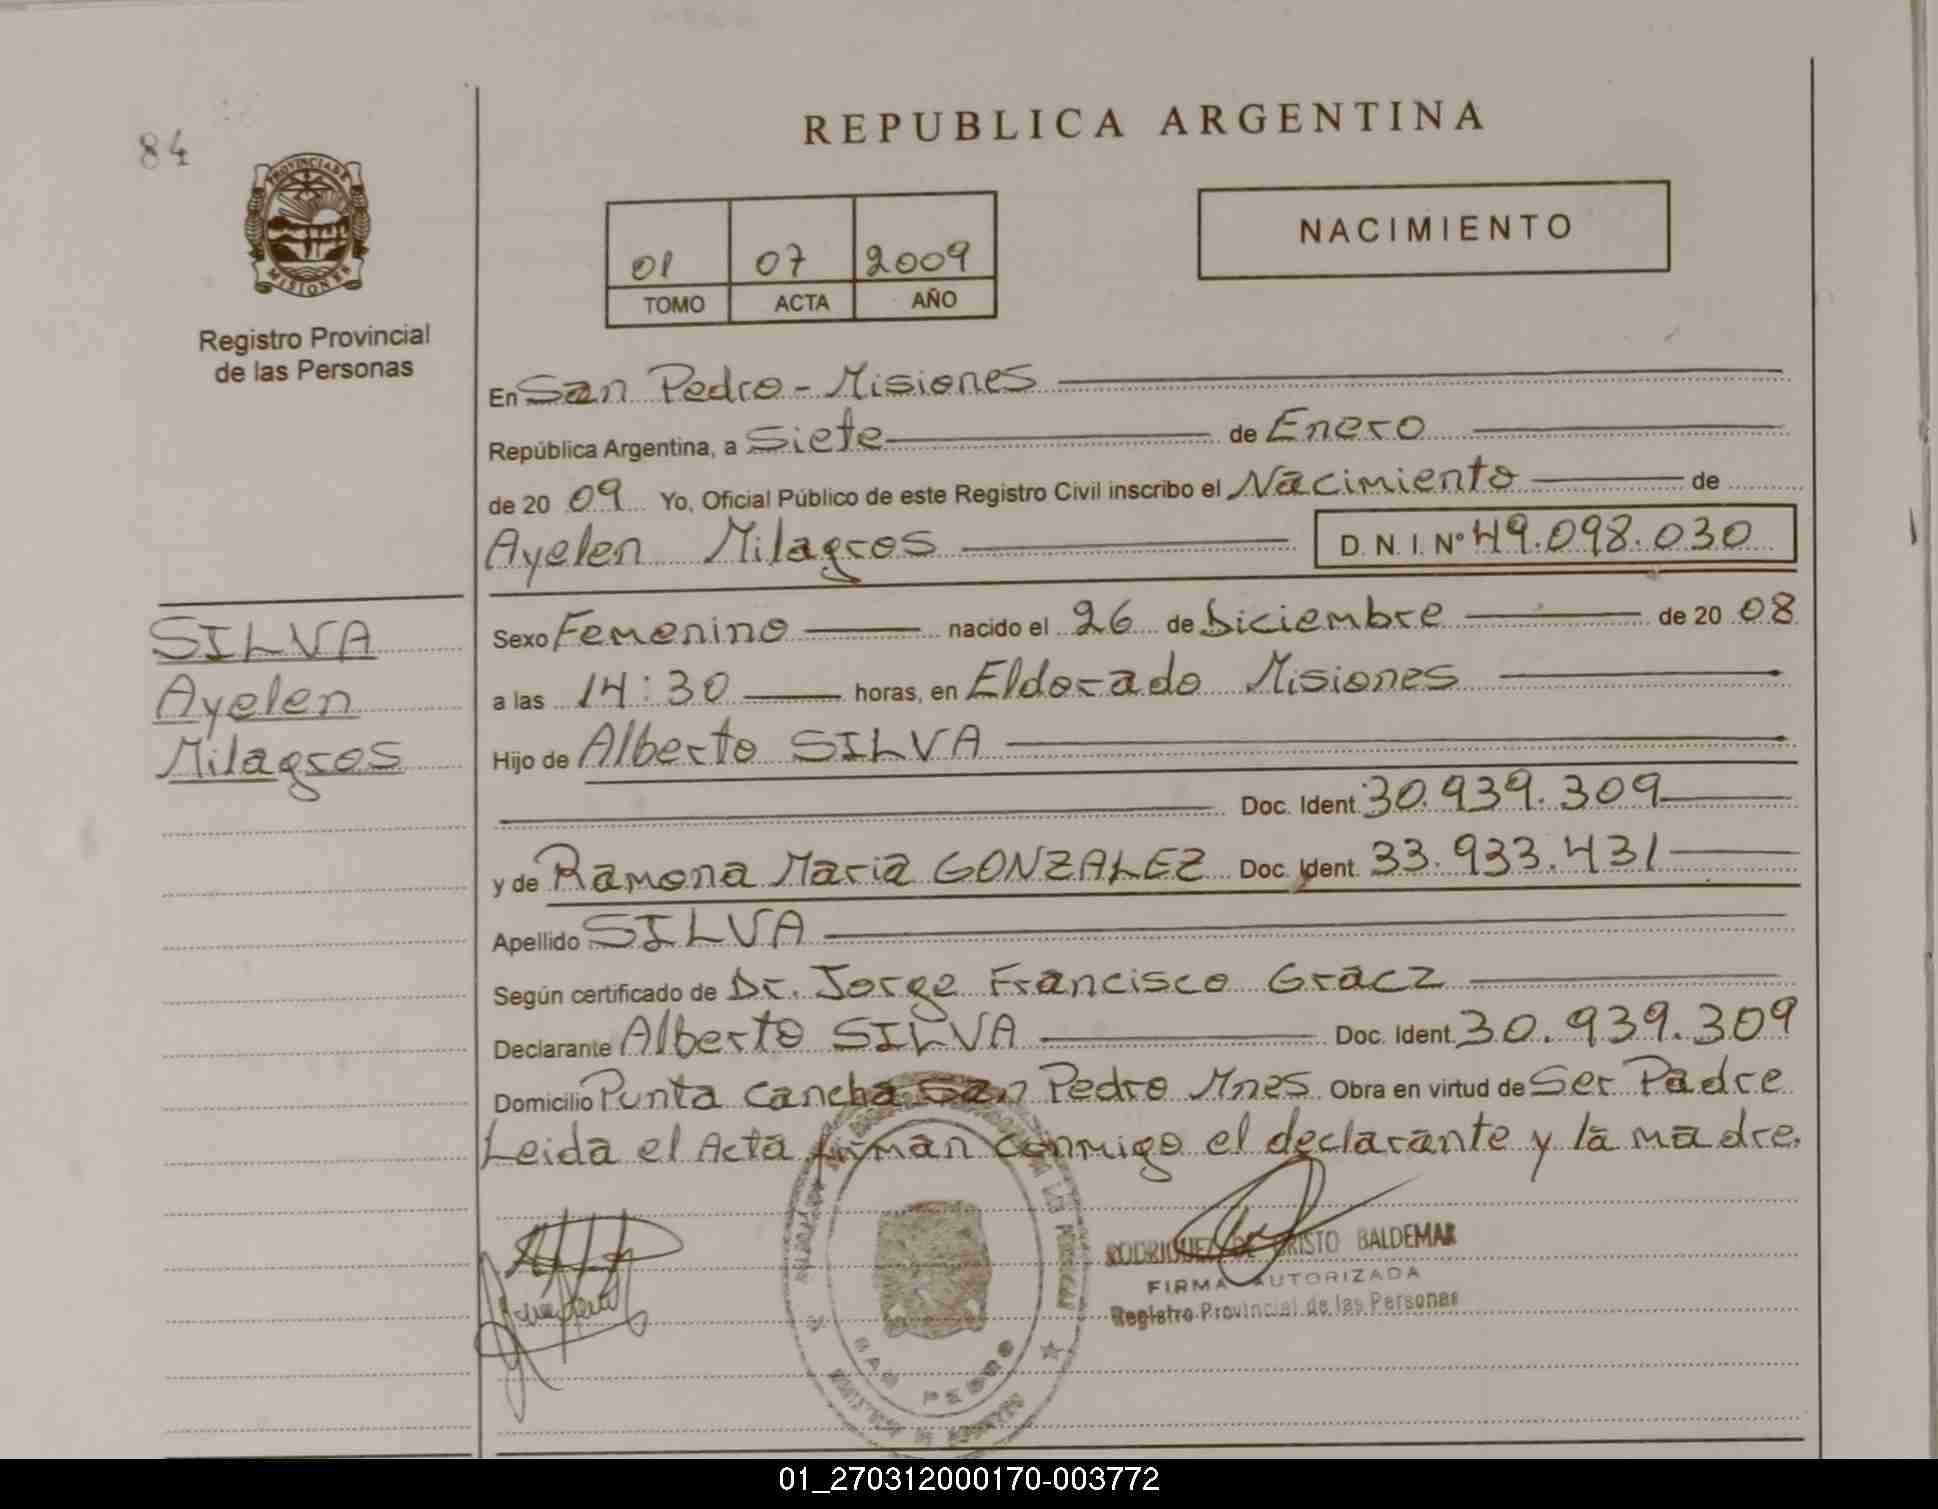 84
PROVINCIA DE
MISIONES
Registro Provincial
de las Personas
REPUBLICA ARGENTINA
01 07 2009
TOMO ACTA AÑO
NACIMIENTO
En San Pedro - Misiones
República Argentina, a Siete de Enero
de 20 09 Yo, Oficial Público de este Registro Civil inscribo el Nacimiento de
Ayelen Milagros D.N.I. Nº 49.098.030
SILVA
Ayelen
Milagros
Sexo Femenino nacido el 26 de Diciembre de 20 08
a las 14:30 horas, en Eldorado Misiones
Hijo de Alberto SILVA
Doc. Ident. 30.939.309
y de Ramona Maria GONZALEZ Doc. Ident. 33.933.431
Apellido SILVA
Según certificado de Dr. Jorge Francisco Gracz
Declarante Alberto SILVA Doc. Ident. 30.939.309
Domicilio Punta Cancha San Pedro Mnes. Obra en virtud de Ser Padre
Leida el Acta firman conmigo el declarante y la madre.
RODRIGUEZ DE CRISTO BALDEMAR
FIRMA AUTORIZADA
Registro Provincial de las Personas
SAN PEDRO
01_270312000170-003772